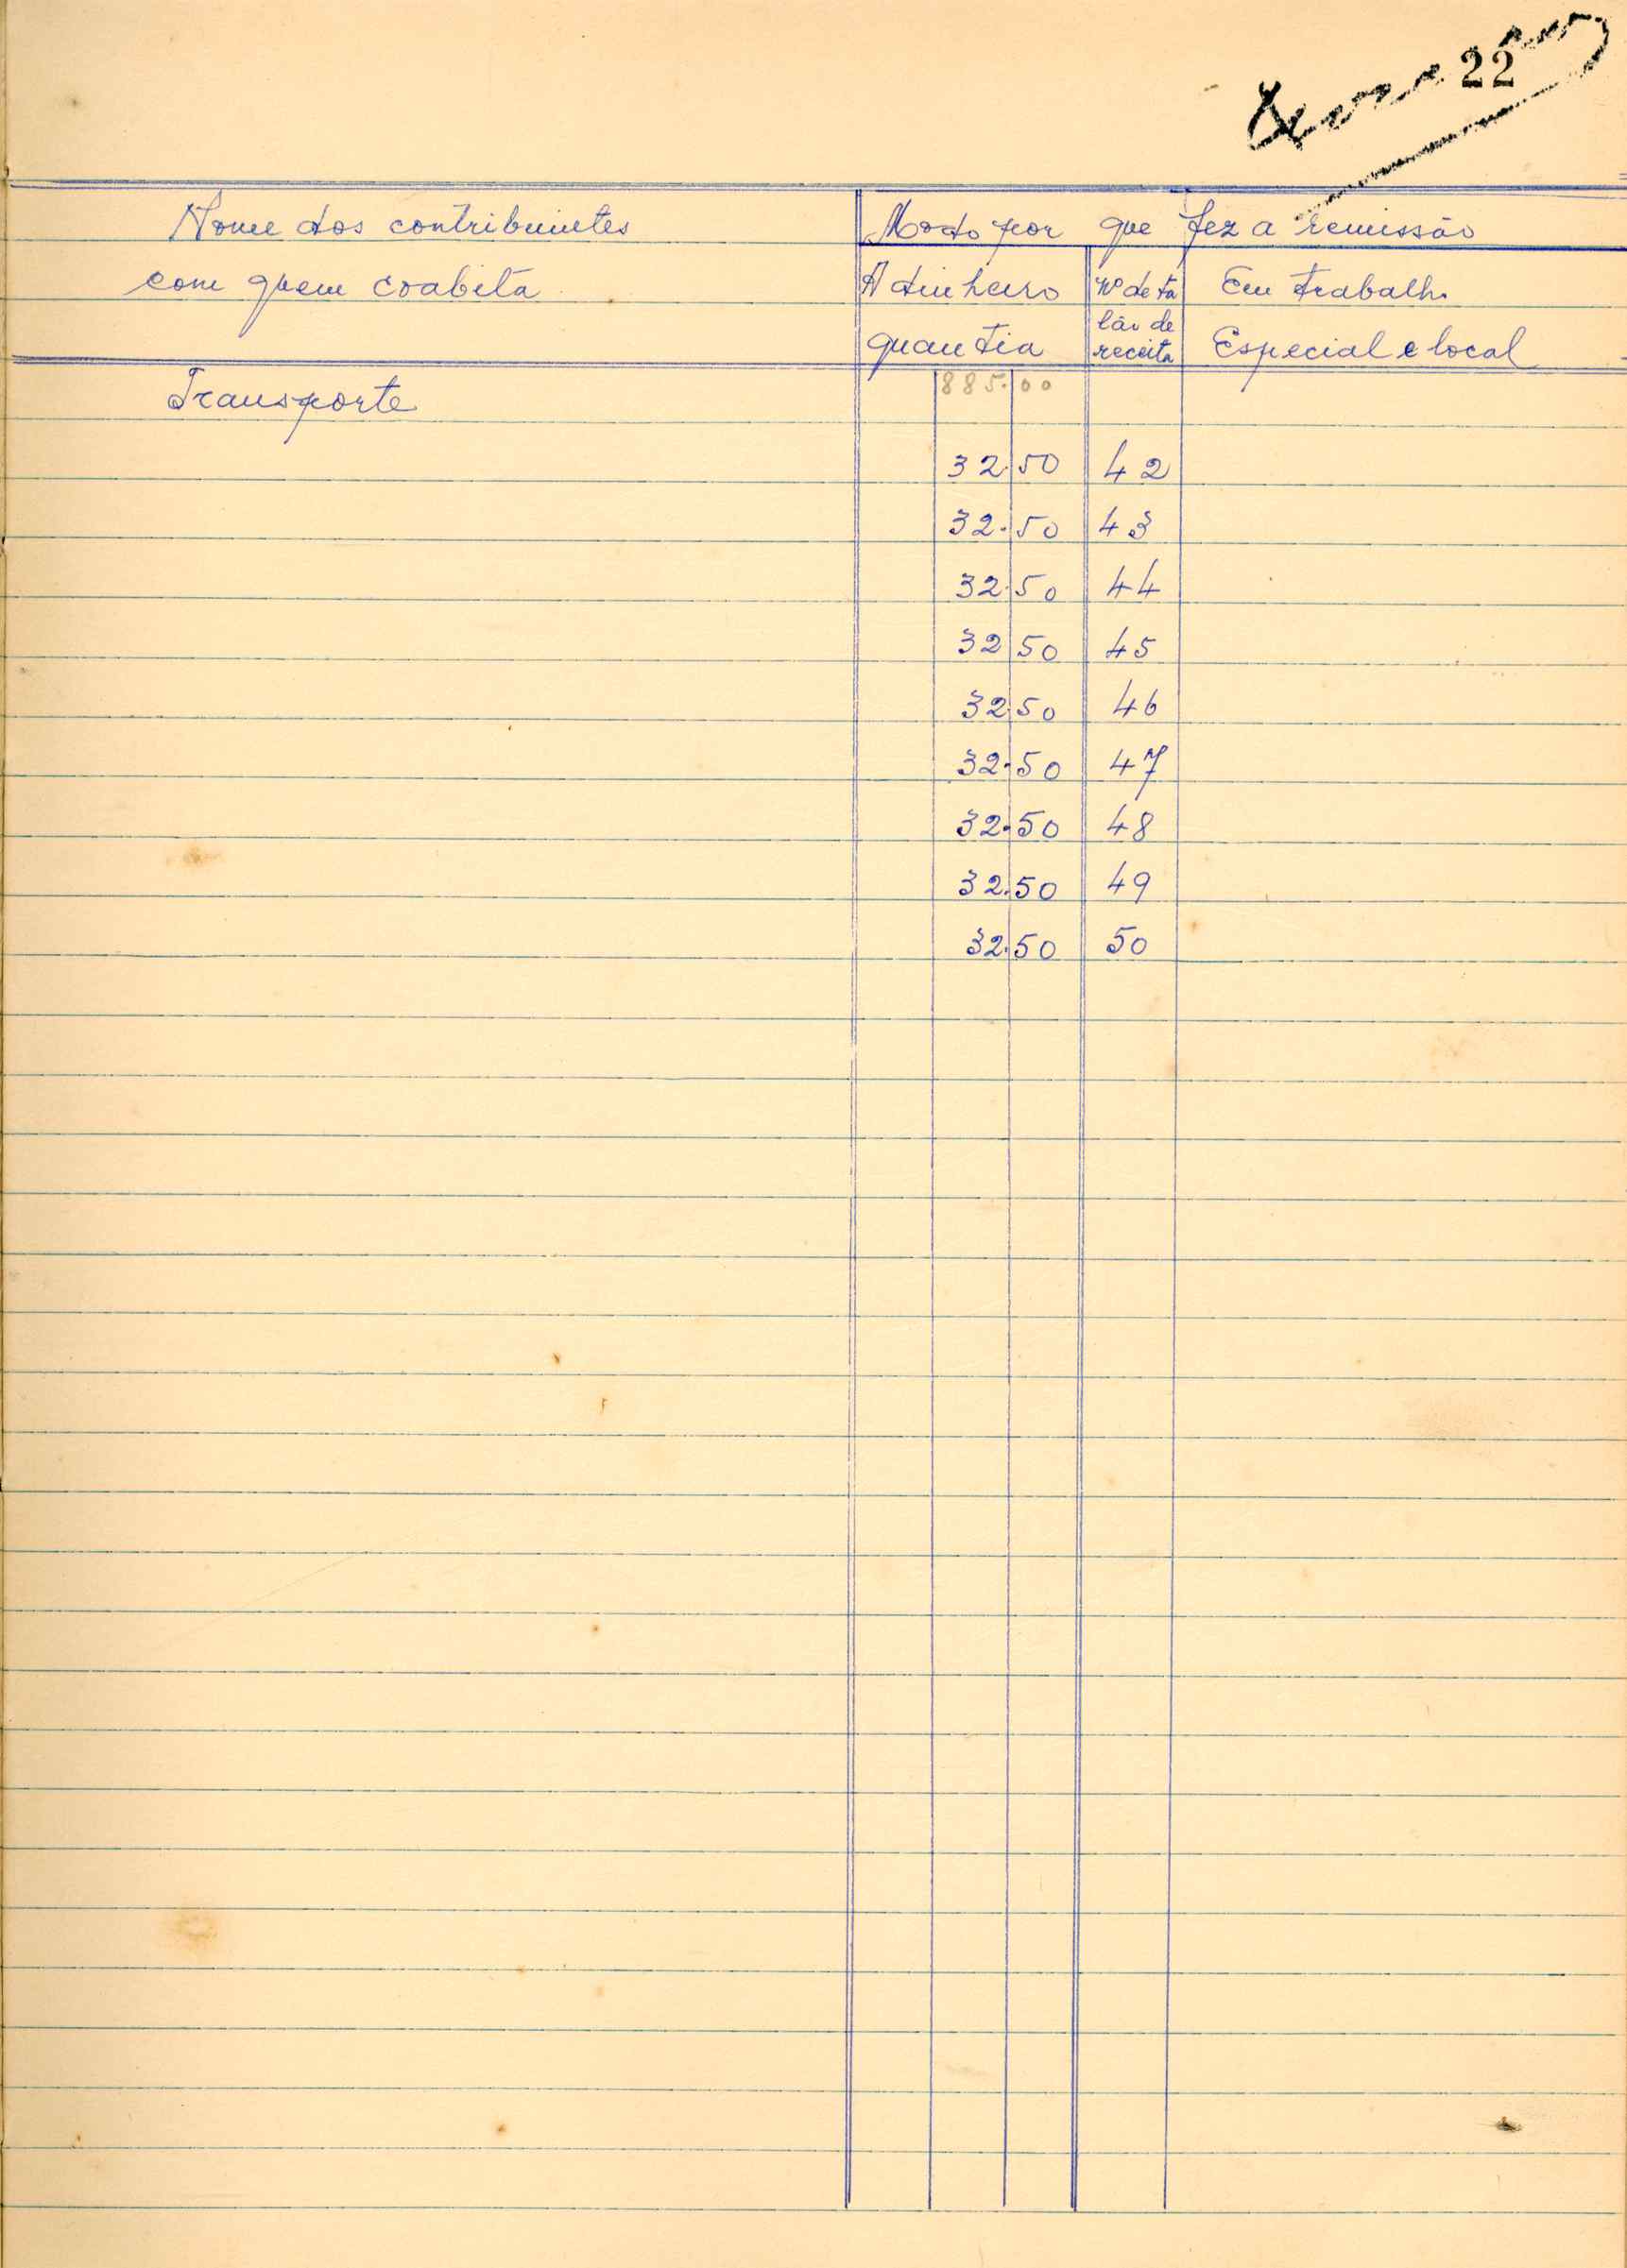 22
Nome dos contribuintes Modo por que fez a remissão
com quem coabita A dinheiro Nº de ta Em trabalho
lão de
quantia receita Especial e local
Transporte 885.00
32.50 42
32.50 43
32.50 44
32 50 45
32.50 46
32.50 47
32.50 48
32.50 49
32.50 50